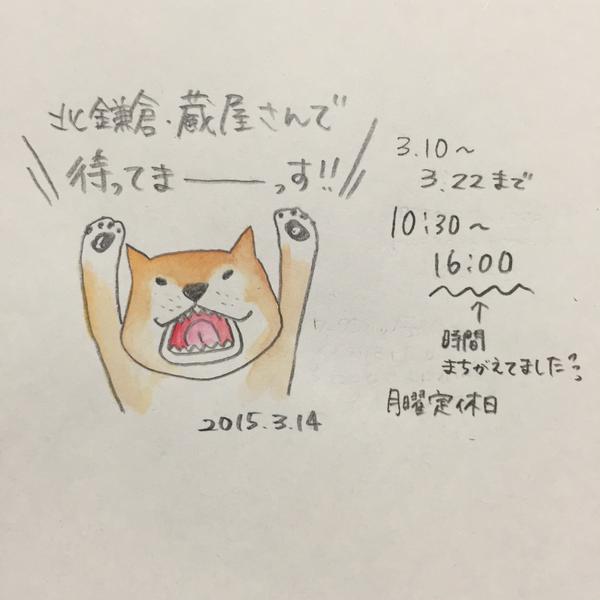 北鎌倉・蔵屋さんで
待ってま――っす!!
3.10～
3.22まで
10:30～
16:00
↑
時間
まちがえてました
月曜定休日
2015.3.14